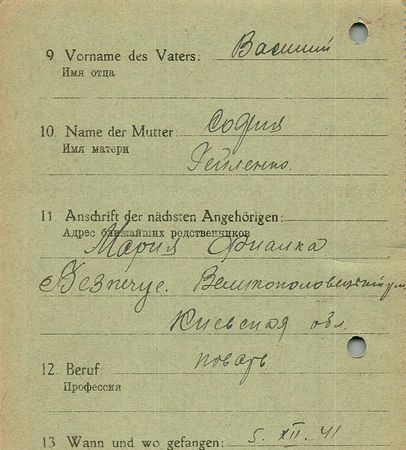 9 Vorname des Vaters: Василий
Имя отца
10. Name der Mutter: София
Имя матери
Гейленко.
11 Anschrift der nächsten Angehörigen:
Адрес ближайших родственников
Мария Фиалка
Безпечус. Великополовецкий р.н.
Киевская обл.
12. Beruf: поваръ
Профессия
13 Wann und wo gefangen: 5. XII. 41